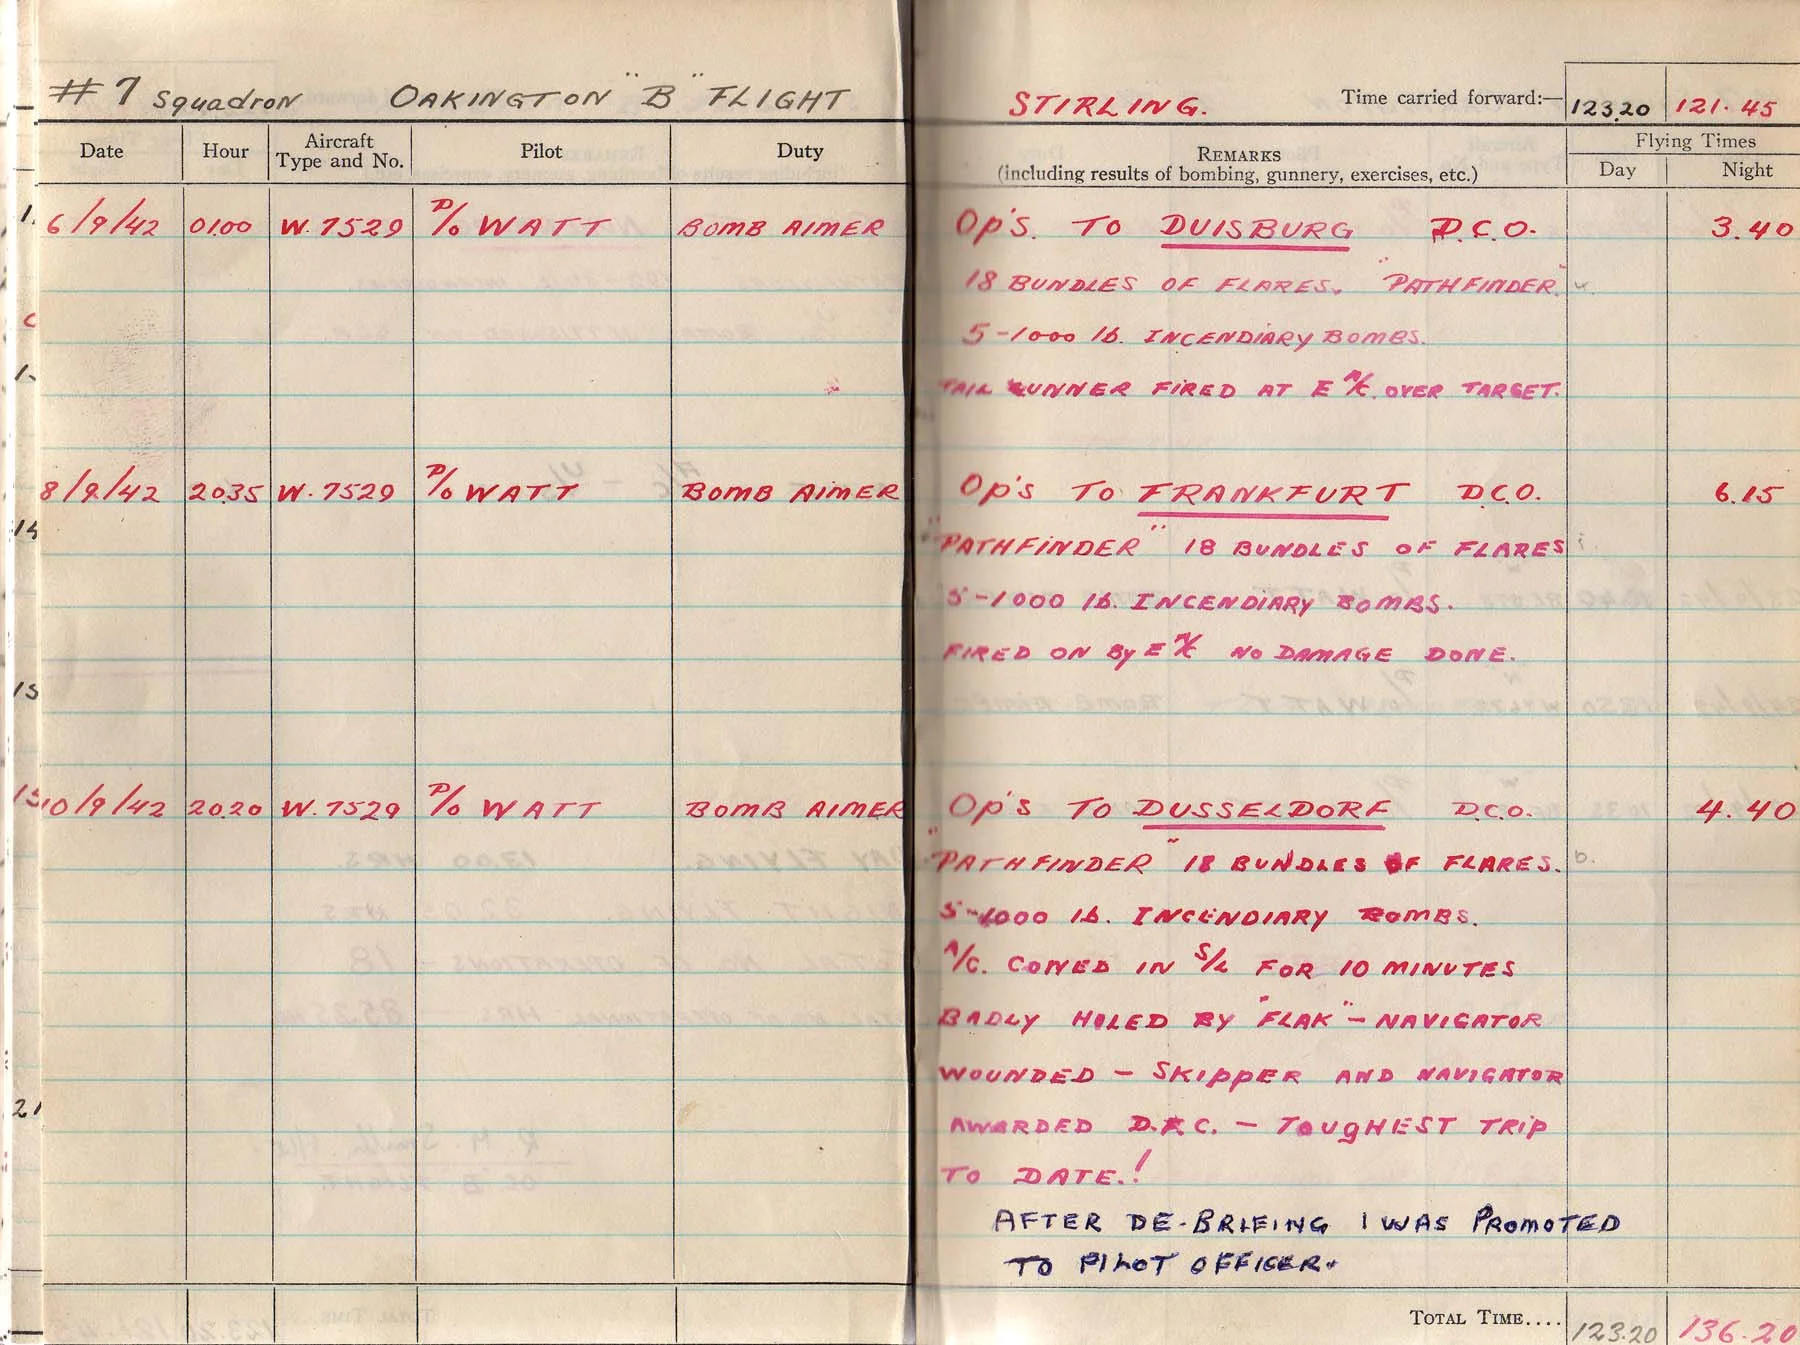 #7 Squadron OAKINGTON "B" FLIGHT
STIRLING. Time carried forward:— 123.20 121.45
Date Hour Aircraft Type and No. Pilot Duty
REMARKS (including results of bombing, gunnery, exercises, etc.) Flying Times Day Night
6/9/42 01.00 W.7529 P/O WATT BOMB AIMER Op's. TO DUISBURG D.C.O. 3.40
18 BUNDLES OF FLARES. "PATHFINDER"
5-1000 lb. INCENDIARY BOMBS.
TAIL GUNNER FIRED AT E A/C. OVER TARGET.
8/9/42 20.35 W.7529 P/O WATT BOMB AIMER Op's TO FRANKFURT D.C.O. 6.15
"PATHFINDER" 18 BUNDLES OF FLARES
5-1000 lb. INCENDIARY BOMBS.
FIRED ON By E A/C NO DAMAGE DONE.
10/9/42 20.20 W.7529 P/O WATT BOMB AIMER Op's TO DUSSELDORF D.C.O. 4.40
"PATHFINDER" 18 BUNDLES OF FLARES.
5-1000 lb. INCENDIARY BOMBS.
A/C. CONED IN S/L FOR 10 MINUTES
BADLY HOLED BY "FLAK" - NAVIGATOR
WOUNDED - SKIPPER AND NAVIGATOR
AWARDED D.F.C. - TOUGHEST TRIP
TO DATE.!
AFTER DE-BRIFING I WAS PROMOTED
TO PILOT OFFICER.
TOTAL TIME.... 123.20 136.20